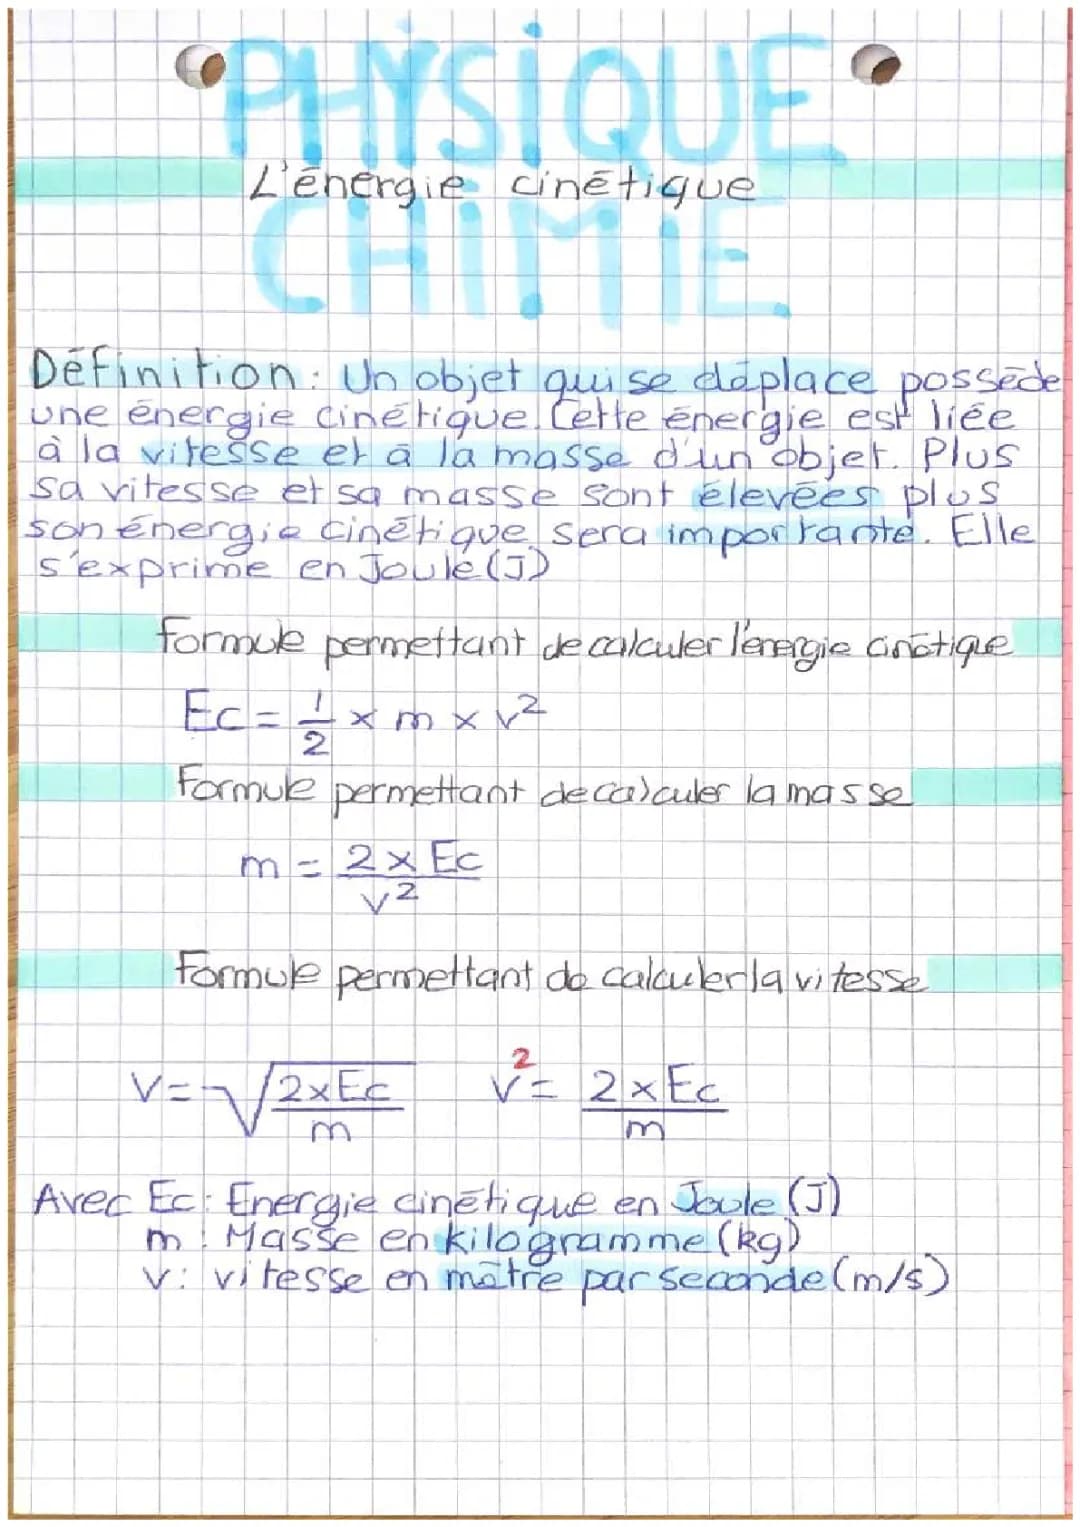 PHYSIQUE
L'énergie cinétique
CHIMIE
Définition: Un objet qui se déplace possède
une énergie cinétique. Cette énergie est liée
à la vitesse et à la masse d'un objet. Plus
sa vitesse et sa masse sont élevées plus
son énergie cinétique sera importante. Elle
s'exprime en Joule (J)
formule permettant de calculer l'énergie cinétique
Ec = 1/2 x m x v²
Formule permettant de calculer la masse
m = 2 x Ec / v²
Formule permettant de calculer la vitesse
V = √(2 x Ec / m)   V² = 2 x Ec / m
Avec Ec: Energie cinétique en Joule (J)
m: Masse en kilogramme (kg)
v: vitesse en mètre par seconde (m/s)